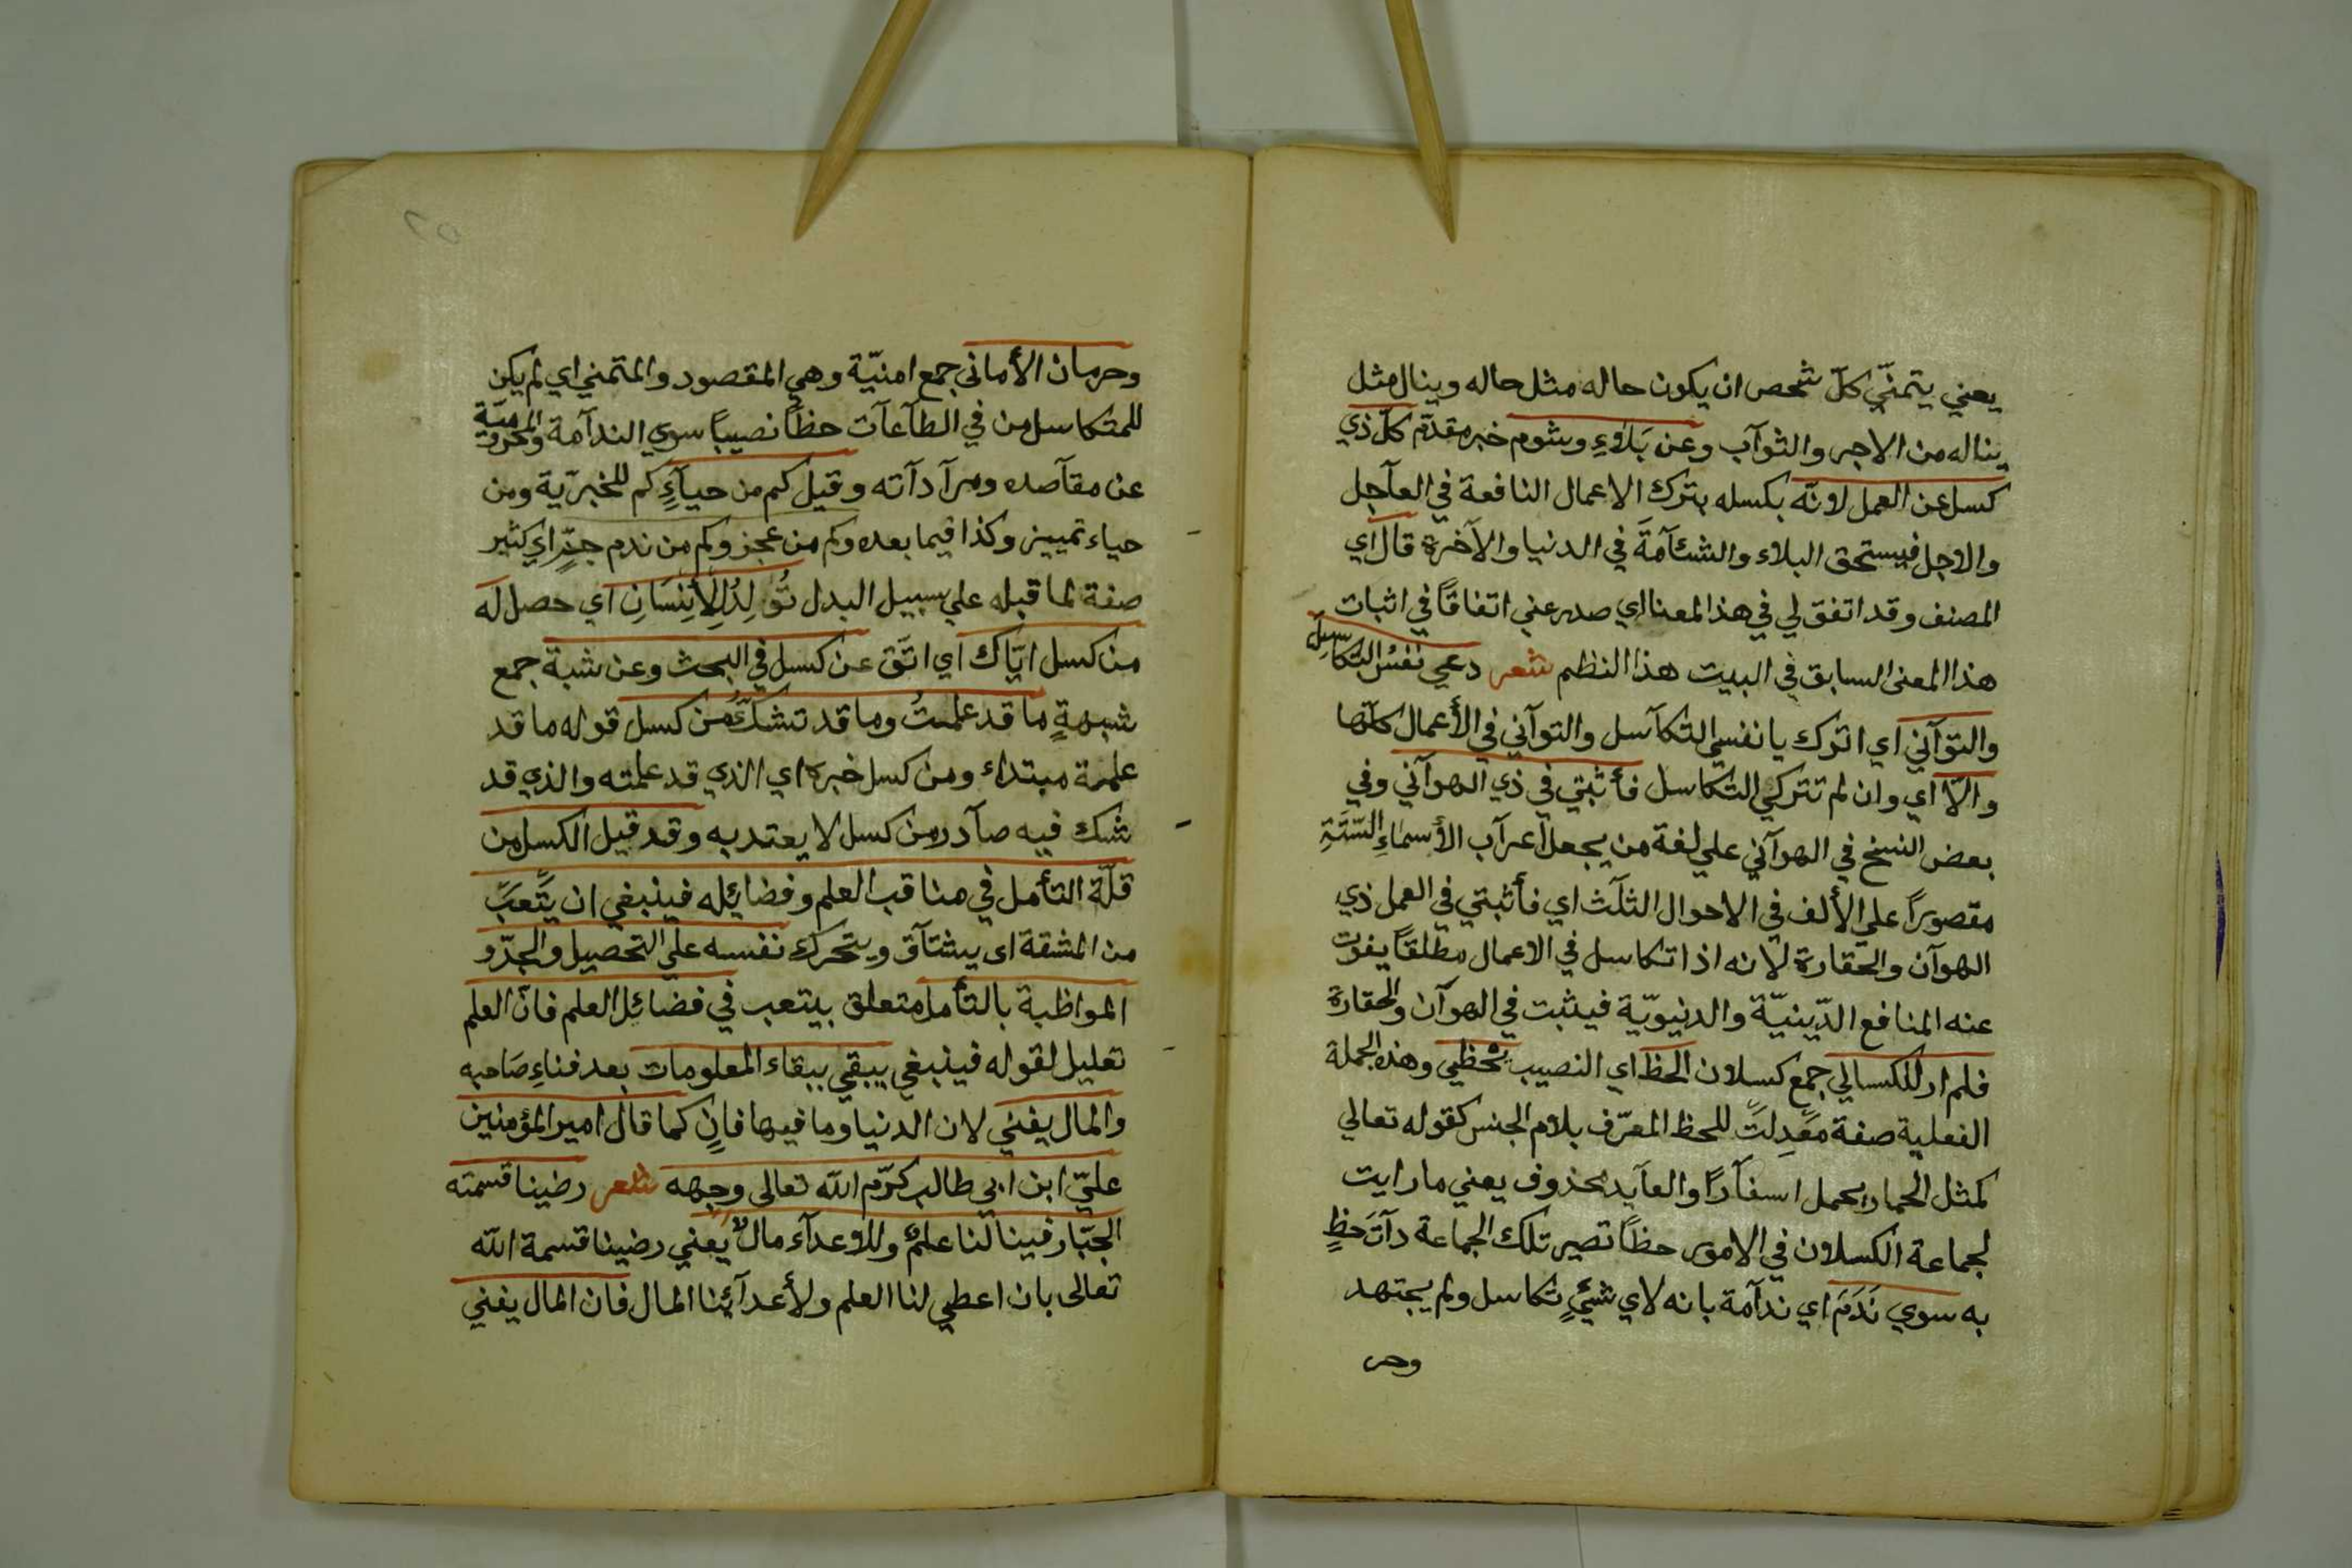 يعني يتمنّي كلّ شخص ان يكون حاله مثل حاله وينال مثل
يناله من الاجر والثوآب وعن بَلاَءٍ وشوم خبر مقدّم كلّ ذي
كسل عن العمل لانّه بكسله بترك الاعمال النافعة في العآجل
والاجل فيستحق البلاء والشئآمَةَ في الدنيا والآخرة قال اي
المصنف وقد اتفق لي في هذا المعنا اي صدر عني اتفاقًا في اثبات
هذا المعنى السابق في البيت هذا النظم شعر دعي نفسُ التكاسل
والتوآني اي اترك يا نفسي التكآسل والتوآني في الأعمال كلّها
والاّ اي وان لم تتركي التكاسل فأثبتي في ذي الهوآني وفي
بعض النسخ في الهوآني علي لغة من يجعل اعرآب الأسماءِ الستّةِ
مقصورًا علي الألف في الاحوال الثلَث اي فأثبتي في العمل ذي
الهوآن والحقارة لانه اذا تكاسل في الاعمال مطلقًا يفوت
عنه المنافع الدّينيّة والدنيويّة فيثبت في الهوآن والحقارة
فلم ار للكسالي جمع كسلان الحظ اي النصيب تحظي وهذه الجملة
الفعلية صفة معّدِلتَ للحظ المعرّف بلام الجنس كقوله تعالي
كمثل الحمار يحمل اسفآرًا والعآيد محذوف يعني ما رايت
لجماعة الكسلان في الامور حظًا تصير تلك الجماعة دآتَ حَظٍ
به سوي نَدَمَ اي ندآمَة بانه لاي شيءٍ تكاسل ولم يجتهد
وحر
وحرمان الأماني جمع امنيّة وهي المقصود والمتمني اي لم يكن
للمتكاسل من في الطآعآت حظًا نصيبًا سوي الندآمة والمحروميّة
عن مقآصده ومرآدآته وقيل كم من حيآءٍ كم للخبريّة ومن
حياء تمييز وكذا فيما بعده وكم من عجز وكم من ندم جمٍّ اي كثير
صفة لما قبله علي سبيل البدل تُولِدُ لِلإِنْسَانِ اي حصل لَه
من كسل ايّاك اي اتّق عن كسل في البحث وعن شبة جمع
شبهةٍ ما قد علمتُ وما قد تشكّ من كسل قوله ما قد
علمة مبتداء ومن كسل خبره اي الذي قد علمته والذي قد
شك فيه صآدر من كسل لا يعتد به وقد قيل الكسل من
قلّة التأمل في مناقب العلم وفضائله فينبغي ان يتّعبّ
من المشقة اى يشتآق ويتحرك نفسه علي التحصيل والجدّ و
المواظبة بالتأمل متعلق بيتعب في فضائل العلم فانّ العلم
تعليل لقوله فينبغي يبقي ببقاء المعلومات بعد فناءِ صَاحبه
والمال يفني لان الدنيا وما فيها فانٍ كما قال امير المؤمنين
عليّ ابن ابي طالب كرّم الله تعالى وجهه شعر رضينا قسمته
الجبّار فينا لنا علمٌ وللاعدآء مالٌ يَعني رضينا قسمة الله
تعالى بان اعطي لنا العلم ولأعدآئنا المال فان المال يفني